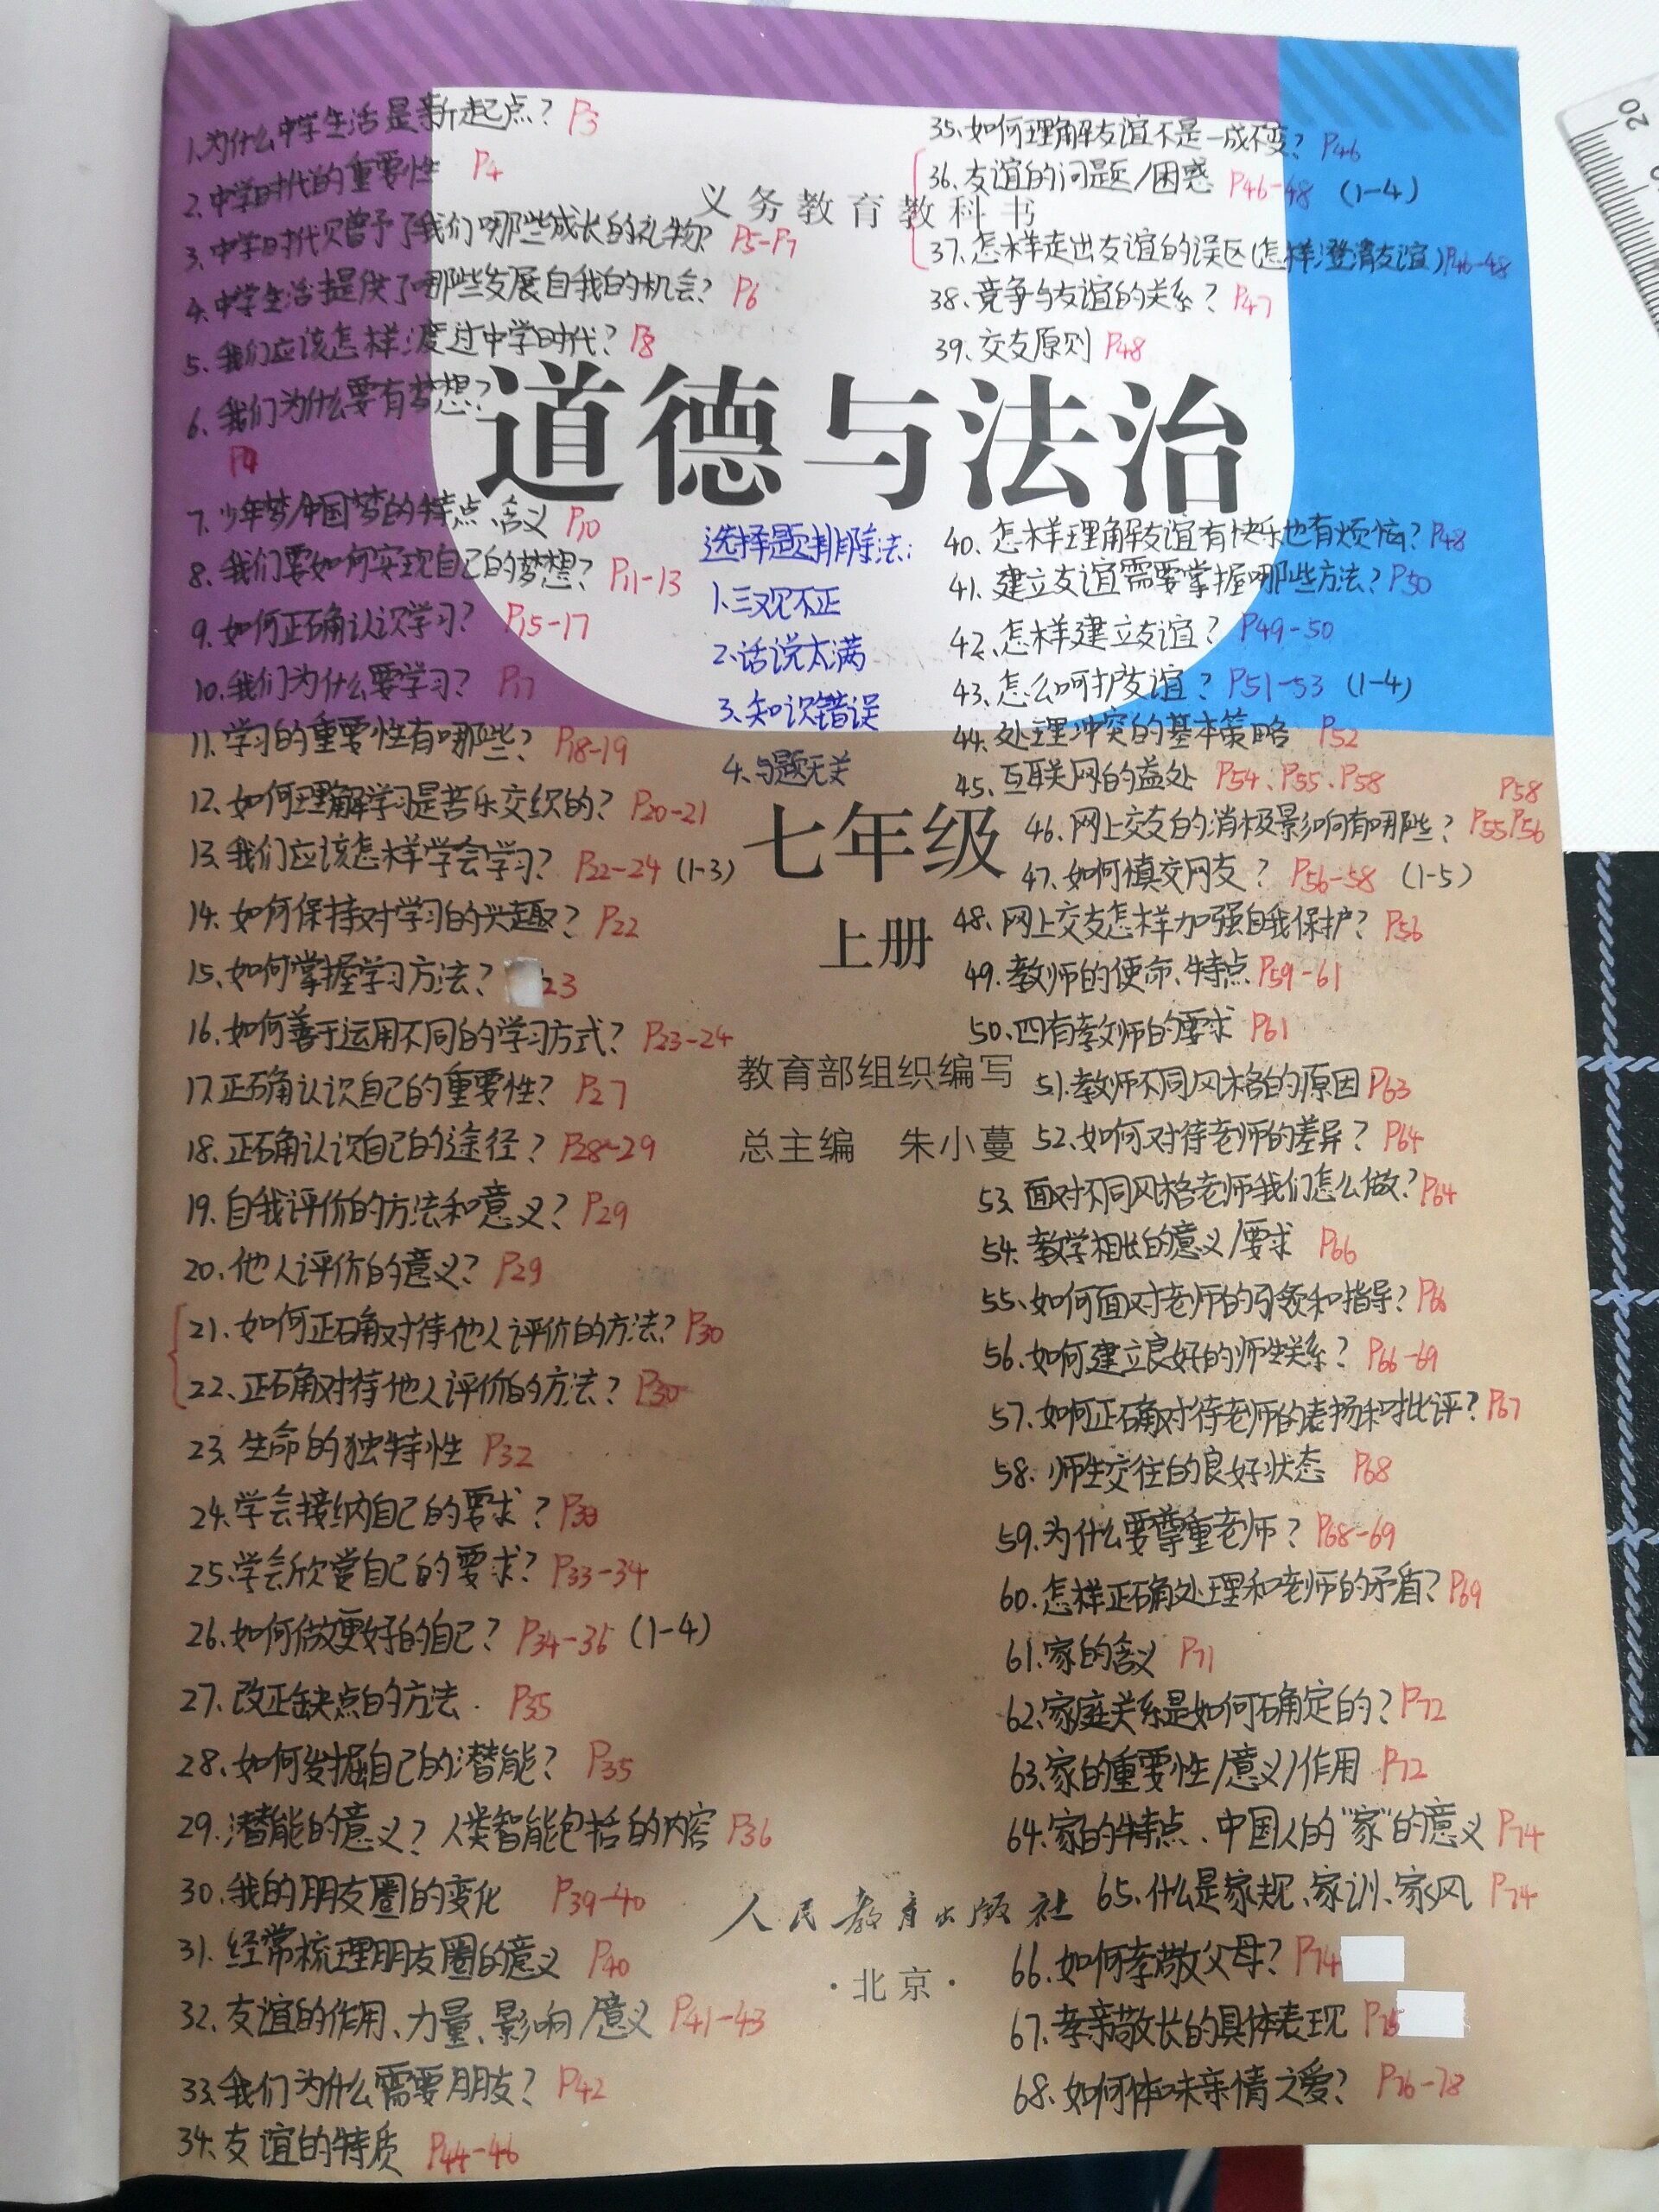 1.为什么中学生活是新起点？ P3
2.中学时代的重要性 P4
3.中学时代赠予了我们哪些成长的礼物？ P5-P7
4.中学生活提供了哪些发展自我的机会？ P6
5.我们应该怎样度过中学时代？ P8
6.我们为什么要有梦想？
7.少年梦/中国梦的特点、含义 P10
8.我们要如何实现自己的梦想？ P11-13
9.如何正确认识学习？ P15-17
10.我们为什么要学习？ P17
11.学习的重要性有哪些？ P18-19
12.如何理解学习是苦乐交织的？ P20-21
13.我们应该怎样学会学习？ P22-24 (1-3)
14.如何保持对学习的兴趣？ P22
15.如何掌握学习方法？ 23
16.如何善于运用不同的学习方式？ P23-24
17.正确认识自己的重要性？ P27
18.正确认识自己的途径？ P28-29
19.自我评价的方法和意义？ P29
20.他人评价的意义？ P29
21.如何正确对待他人评价的方法？ P30
22.正确对待他人评价的方法？ P30
23.生命的独特性 P32
24.学会接纳自己的要求？ P33
25.学会欣赏自己的要求？ P33-34
26.如何做更好的自己？ P34-36 (1-4)
27.改正缺点的方法. P35
28.如何发掘自己的潜能？ P35
29.潜能的意义？人类智能包括的内容 P36
30.我的朋友圈的变化 P39-40
31.经常梳理朋友圈的意义 P40
32.友谊的作用、力量、影响/意义 P41-43
33.我们为什么需要朋友？ P42
34.友谊的特质 P44-46
义务教育教科书
道德与法治
选择题排除法：
1.三观不正
2.话说太满
3.知识错误
4.与题无关
七年级
上册
教育部组织编写
总主编 朱小蔓
人民教育出版社
·北京·
35.如何理解友谊不是一成不变？ P46
36.友谊的问题/困惑 P46-48 (1-4)
37.怎样走出友谊的误区(怎样澄清友谊) P46-48
38.竞争与友谊的关系？ P47
39.交友原则 P48
40.怎样理解友谊有快乐也有烦恼？ P48
41.建立友谊需要掌握哪些方法？ P50
42.怎样建立友谊？ P49-50
43.怎么呵护友谊？ P51-53 (1-4)
44.处理冲突的基本策略 P52
45.互联网的益处 P54、P55、P58
46.网上交友的消极影响有哪些？ P55 P56 P58
47.如何慎交网友？ P56-58 (1-5)
48.网上交友怎样加强自我保护？ P56
49.教师的使命、特点 P59-61
50.四有教师的要求 P61
51.教师不同风格的原因 P63
52.如何对待老师的差异？ P64
53.面对不同风格老师我们怎么做？ P64
54.教学相长的意义/要求 P66
55.如何面对老师的引领和指导？ P66
56.如何建立良好的师生关系？ P66-69
57.如何正确对待老师的表扬和批评？ P67
58.师生交往的良好状态 P68
59.为什么要尊重老师？ P68-69
60.怎样正确处理和老师的矛盾？ P69
61.家的含义 P71
62.家庭关系是如何确定的？ P72
63.家的重要性/意义/作用 P72
64.家的特点、中国人的“家”的意义 P74
65.什么是家规、家训、家风 P74
66.如何孝敬父母？ P74
67.孝亲敬长的具体表现 P75
68.如何体味亲情之爱？ P76-78